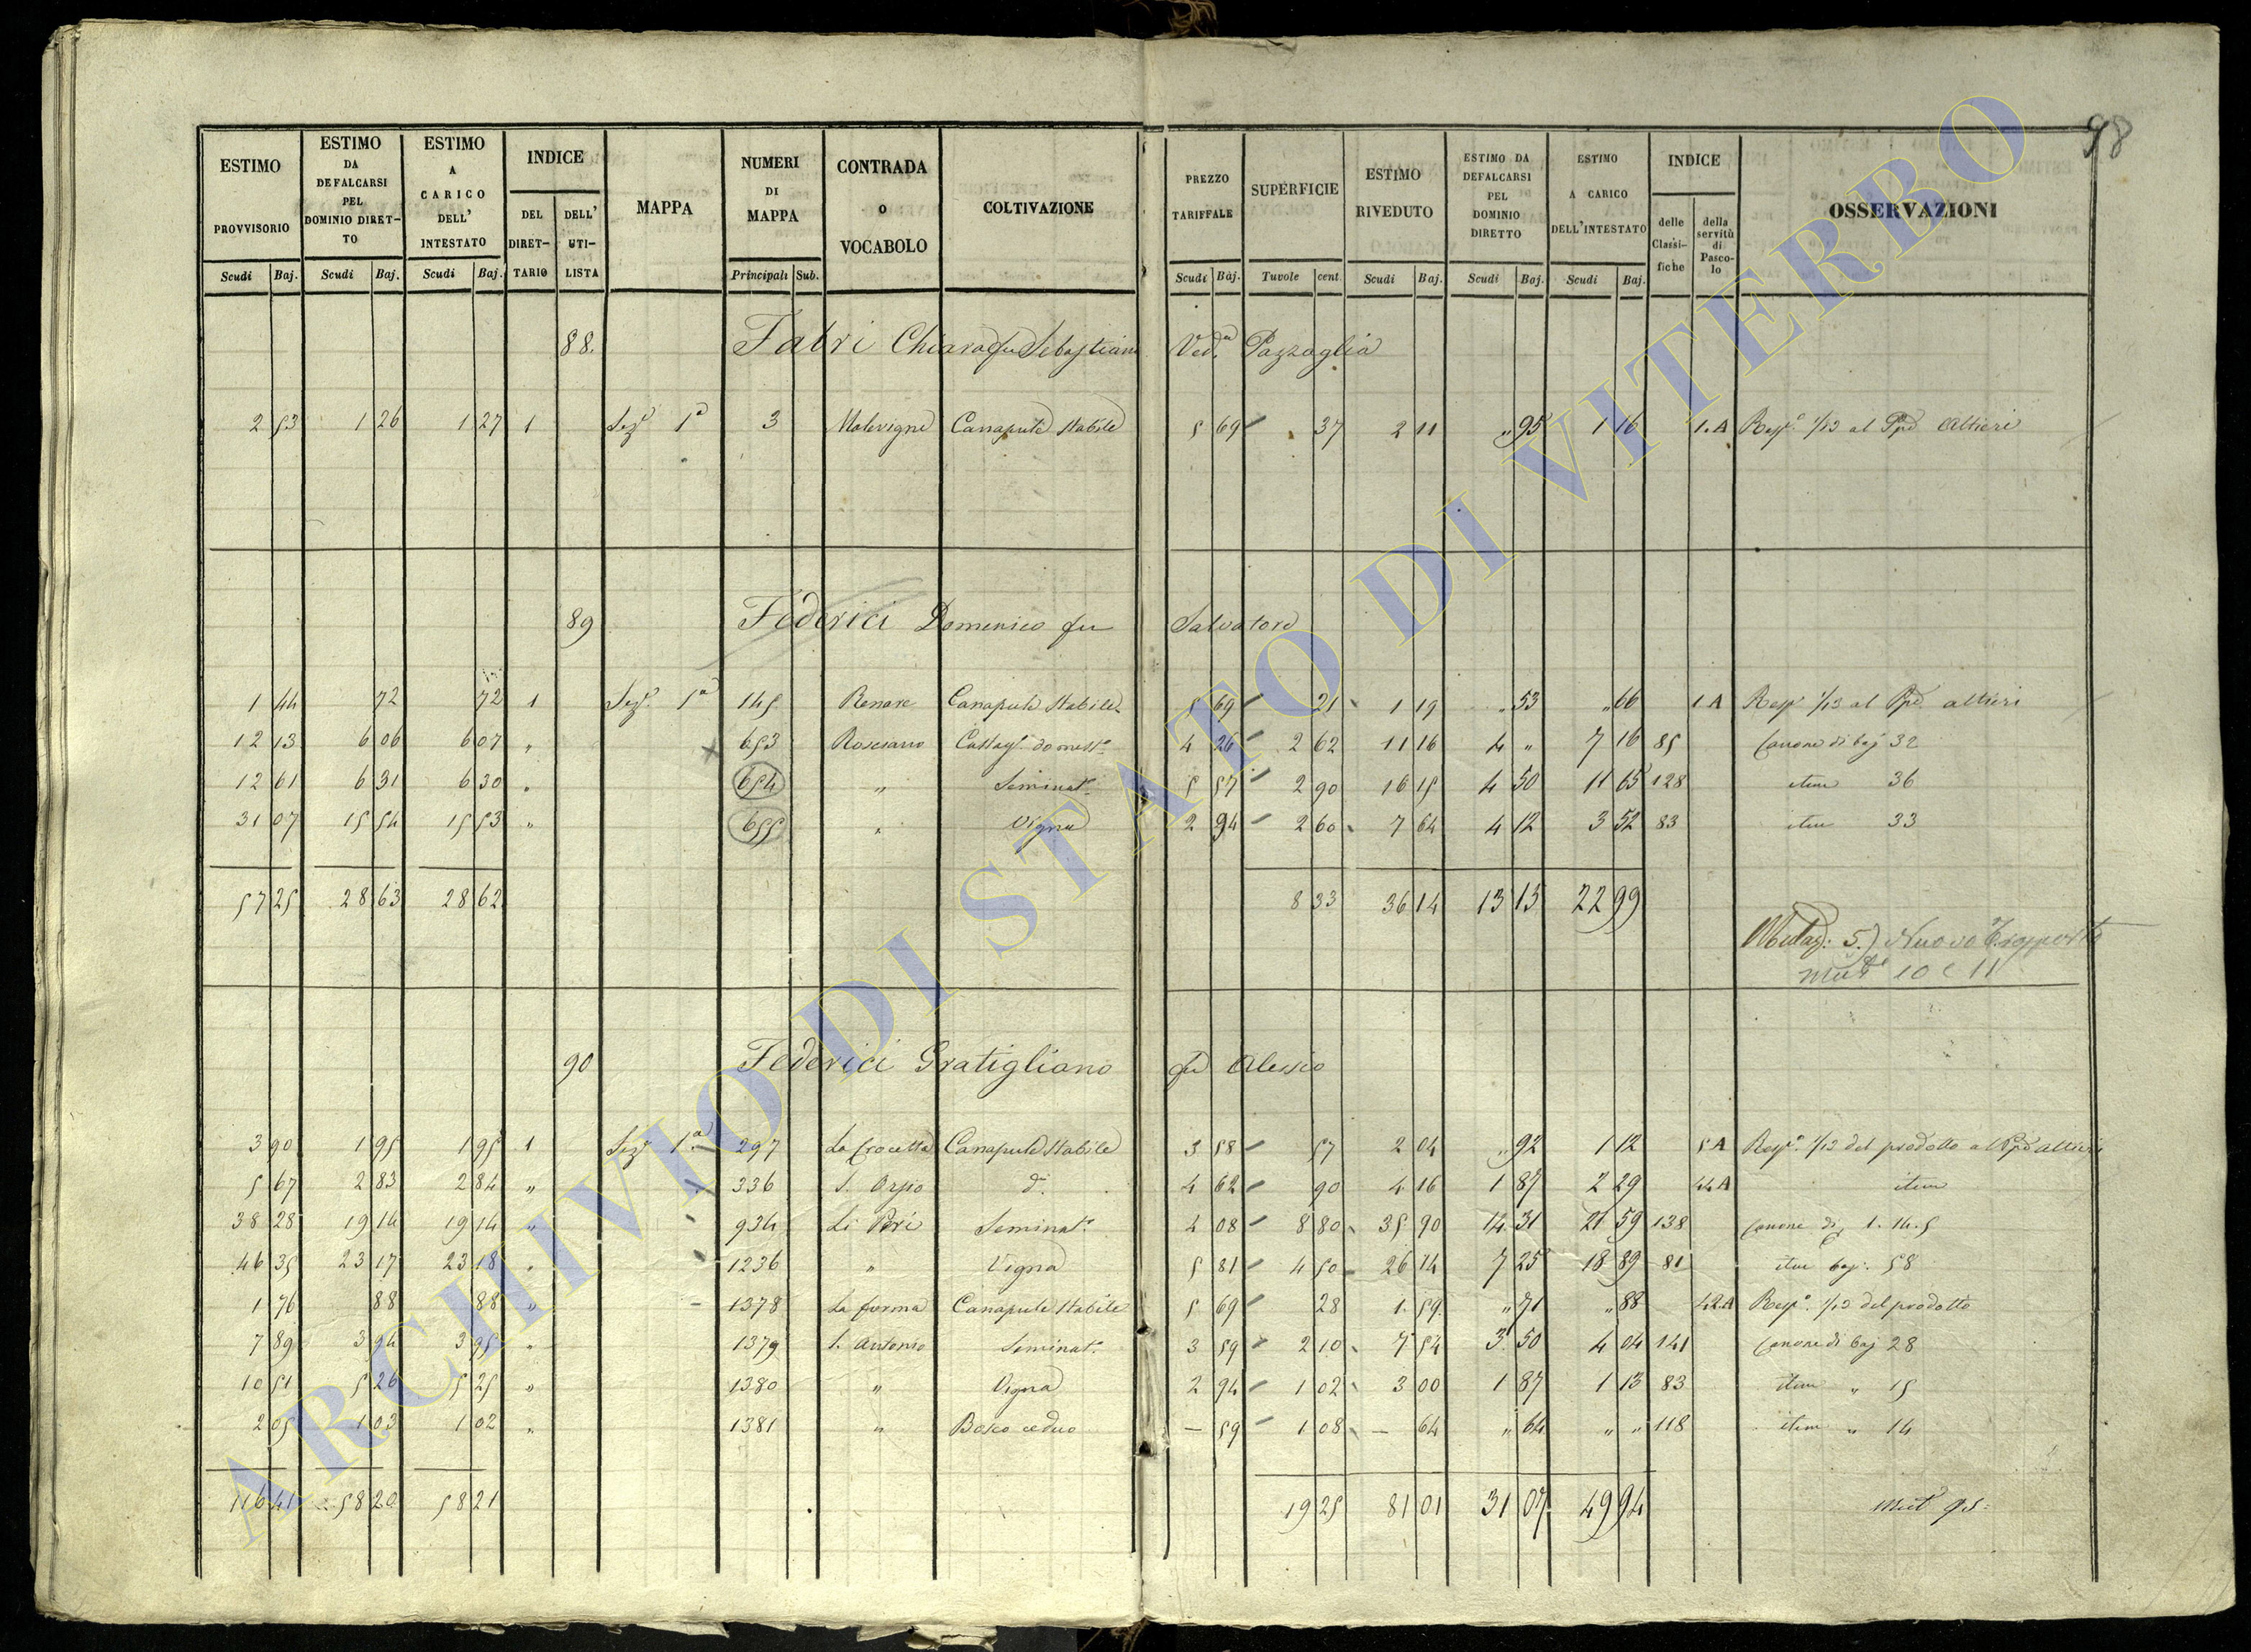 98
ESTIMO PROVVISORIO Scudi Baj. | ESTIMO DA DEFALCARSI PEL DOMINIO DIRETTO Scudi Baj. | ESTIMO A CARICO DELL' INTESTATO Scudi Baj. | INDICE DEL DIRETTARIO DELL' UTILISTA | MAPPA | NUMERI DI MAPPA Principali Sub. | CONTRADA O VOCABOLO | COLTIVAZIONE | PREZZO TARIFFALE Scudi Baj. | SUPERFICIE Tavole cent. | ESTIMO RIVEDUTO Scudi Baj. | ESTIMO DA DEFALCARSI PEL DOMINIO DIRETTO Scudi Baj. | ESTIMO A CARICO DELL'INTESTATO Scudi Baj. | INDICE delle Classifiche della servitù di Pascolo | OSSERVAZIONI
88. Fabri Chiara fu Sebastiano Ved.a Pazzaglia
2 53 1 26 1 27 1 Sez. 1a 3 Malevigne Canapule stabile 5 69 37 2 11 " 95 1 16 1.A Resp. 1/13 al Ppe Altieri
89 Federici Domenico fu Salvatore
1 44 72 72 1 Sez. 1a 145 Renare Canapule stabile 5 69 21 1 19 " 53 " 66 1 A Resp. 1/13 al Ppe altieri
12 13 6 06 6 07 " 653 Rosciano Castag. domest. 4 26 2 62 11 16 4 " 7 16 85 Canone di baj 32
12 61 6 31 6 30 " 654 " Seminat. 5 57 2 90 16 15 4 50 11 65 128 item 36
31 07 15 54 15 53 " 655 " Vigna 2 94 2 60 7 64 4 12 3 52 83 item 33
57 25 28 63 28 62 8 33 36 14 13 15 22 99
Mutaz: 5.) Nuovo Trasporto
Mut. 10 e 11
90 Federici Gratigliano fu Alessio
3 90 1 95 1 95 1 Sez. 1a 297 La Crocetta Canapule stabile 3 58 57 2 04 " 92 1 12 5 A Resp. 1/13 del prodotto al Ppe altieri
5 67 2 83 2 84 " 336 S. Orsio d. 4 62 90 4 16 1 87 2 29 44 A item
38 28 19 14 19 14 " 934 Li Seminat. 4 08 8 80 35 90 14 31 21 59 138 Canone di 1.14.5
46 35 23 17 23 18 " 1236 " Vigna 5 81 4 50 26 14 7 25 18 89 81 item baj. 58
1 76 88 88 " 1378 La forma Canapule stabile 5 69 28 1 59 " 71 " 88 42.A Resp. 1/13 del prodotto
7 89 3 94 3 95 " 1379 S. Antonio Seminat. 3 59 2 10 7 54 3 50 4 04 141 Canone di baj 28
10 51 5 26 5 25 " 1380 " Vigna 2 94 1 02 3 00 1 87 1 13 83 item " 15
2 05 1 03 1 02 " 1381 " Bosco ceduo — 59 1 08 — 64 " 64 " " 118 item " 14
116 41 58 20 58 21 19 25 81 01 31 07 49 94 Mut.
ARCHIVIO DI STATO DI VITERBO